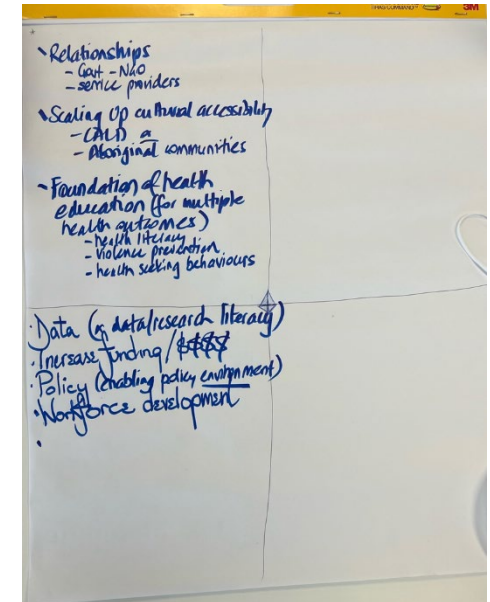 3M
- Relationships
- Govt - NGO
- service providers
- Scaling Up cultural accessibility
- CALD &
- Aboriginal communities
- Foundation of health
education (for multiple
health outcomes)
- health literacy
- violence prevention
- health seeking behaviours
· Data (& data/research literacy)
· Increase funding/$$$$
· Policy (enabling policy environment)
· Workforce development
·